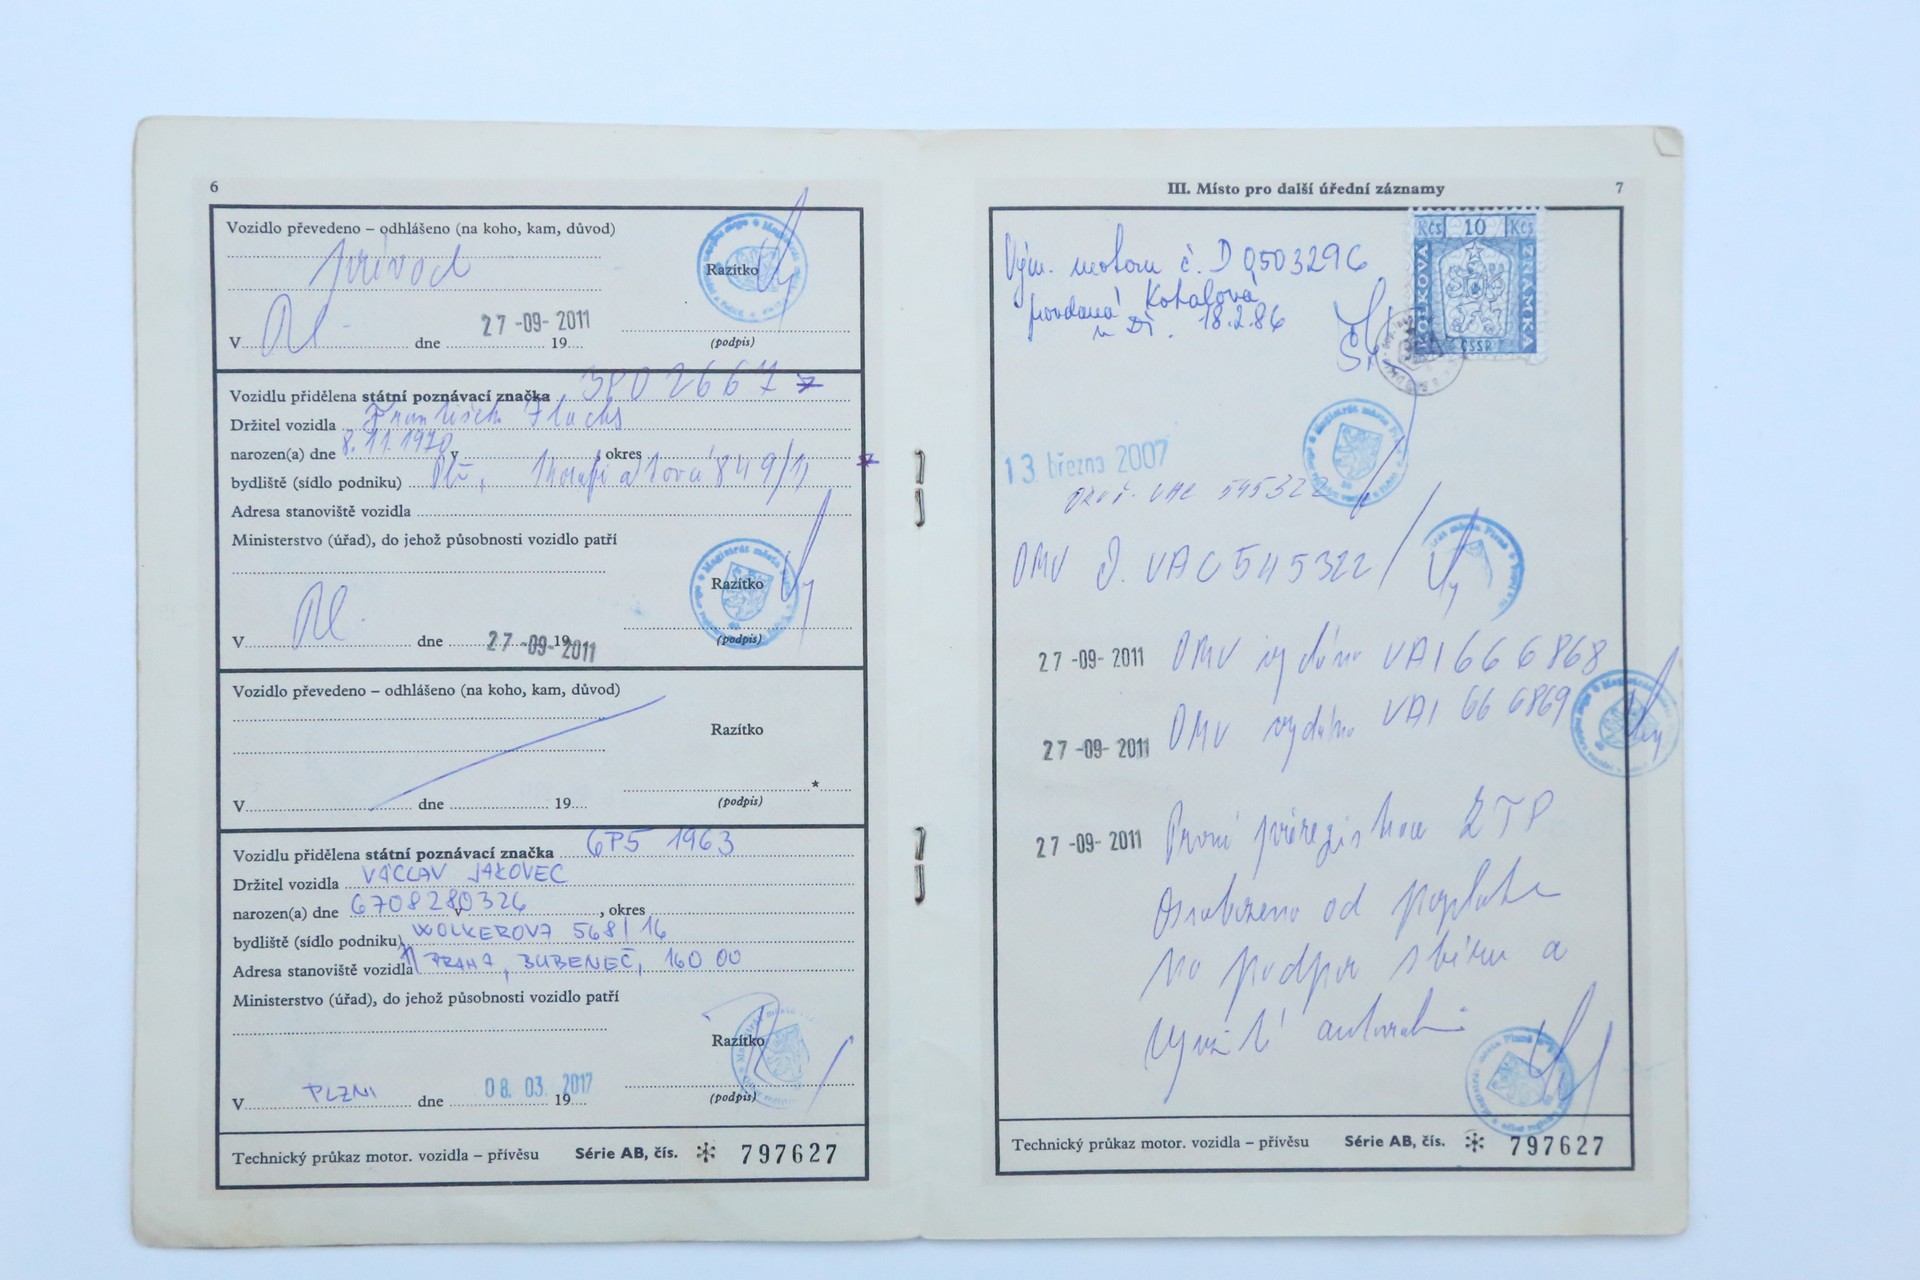 6
Vozidlo převedeno – odhlášeno (na koho, kam, důvod)
převod
Razítko
27 -09- 2011
V Pl. dne 19
(podpis)
Vozidlu přidělena státní poznávací značka 3P0 2667
Držitel vozidla František
narozen(a) dne 8.11.1970 v , okres
bydliště (sídlo podniku) 849/11
Adresa stanoviště vozidla
Ministerstvo (úřad), do jehož působnosti vozidlo patří
Razítko
V Pl. dne 27 -09- 2011 19
(podpis)
Vozidlo převedeno – odhlášeno (na koho, kam, důvod)
Razítko
*
V dne 19
(podpis)
Vozidlu přidělena státní poznávací značka 6P5 1963
Držitel vozidla VÁCLAV JAKOVEC
narozen(a) dne 6708280326 v , okres
bydliště (sídlo podniku) WOLKEROVA 568/16
Adresa stanoviště vozidla PRAHA, BUBENEČ, 160 00
Ministerstvo (úřad), do jehož působnosti vozidlo patří
Razítko
V PLZNI dne 08. 03. 2017 19
(podpis)
Technický průkaz motor. vozidla – přívěsu Série AB, čís. 797627
III. Místo pro další úřední záznamy 7
Kčs 10 Kčs
KOLKOVÁ ZNÁMKA
ČSSR
Vým. motoru č. D 0503296
18.2.86
13. března 2007
VAC 545322
OMV VAC 545322
27 -09- 2011 OMV vydáno VAI 666868
27 -09- 2011 OMV vydáno VAI 666869
27 -09- 2011 První přeregistrace ZTP
Osvobozeno od poplatku
na podporu sběru a
využití autovraků
Technický průkaz motor. vozidla – přívěsu Série AB, čís. 797627